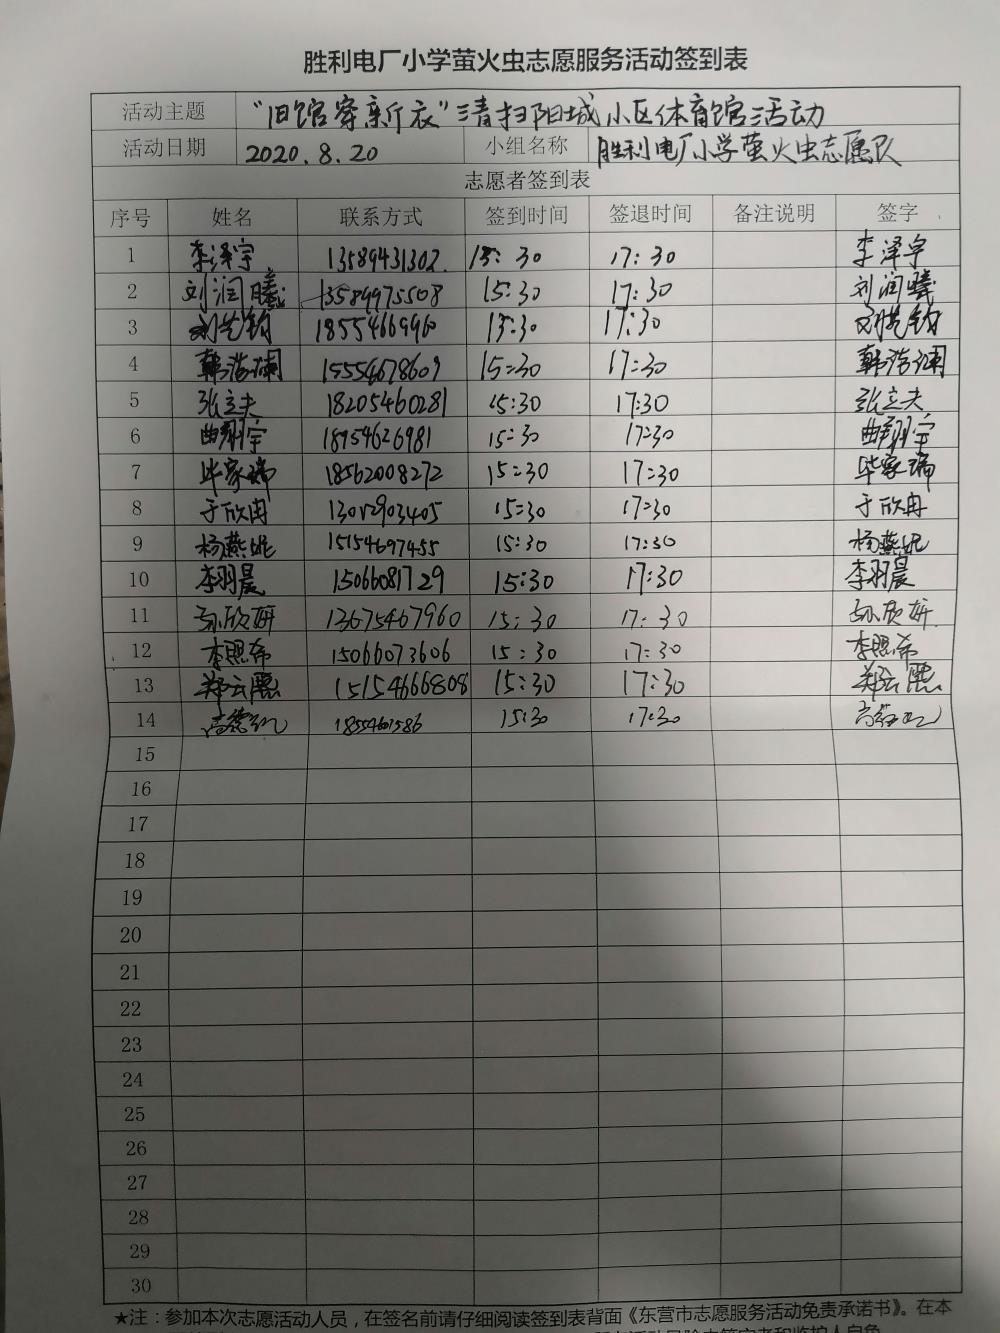 胜利电厂小学萤火虫志愿服务活动签到表
活动主题 "旧馆穿新衣"清扫阳城小区体育馆活动
活动日期 2020.8.20 小组名称 胜利电厂小学萤火虫志愿队
志愿者签到表
序号 姓名 联系方式 签到时间 签退时间 备注说明 签字
1 李泽宇 13589431302 15:30 17:30 李泽宇
2 刘润曦 13589975508 15:30 17:30 刘润曦
3 18554669960 15:30 17:30
4 韩浩澜 15554678609 15:30 17:30 韩浩澜
5 张立夫 18205460281 15:30 17:30 张立夫
6 曲翔宇 18954626981 15:30 17:30 曲翔宇
7 毕家瑞 18562008272 15:30 17:30 毕家瑞
8 于欣冉 15:30 17:30 于欣冉
9 杨燕妮 15154697455 15:30 17:30 杨燕妮
10 李羽晨 15066081729 15:30 17:30 李羽晨
11 孙欣妍 13675467960 15:30 17:30 孙欣妍
12 李熙希 15066073606 15:30 17:30 李熙希
13 郑云熙 15154666808 15:30 17:30 郑云熙
14 15:30 17:30
15
16
17
18
19
20
21
22
23
24
25
26
27
28
29
30
★注：参加本次志愿活动人员，在签名前请仔细阅读签到表背面《东营市志愿服务活动免责承诺书》。在本